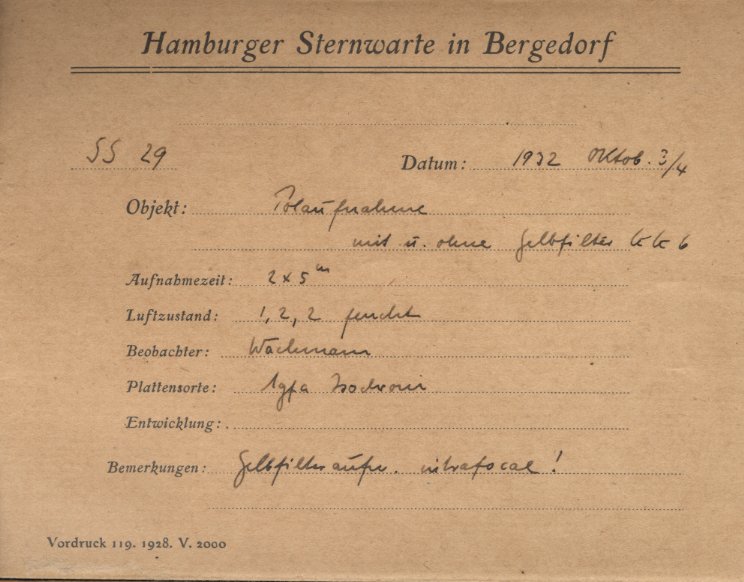 Hamburger Sternwarte in Bergedorf
SS 29 Datum: 1932 Oktob. 3/4
Objekt: Polaufnahme
mit u. ohne Gelbfilter
Aufnahmezeit: 2 x 5m
Luftzustand: 1, 2, 2 feucht
Beobachter: Wachmann
Plattensorte: Agfa Isochrom
Entwicklung:
Bemerkungen: Gelbfilteraufn. intrafocal!
Vordruck 119. 1928. V. 2000